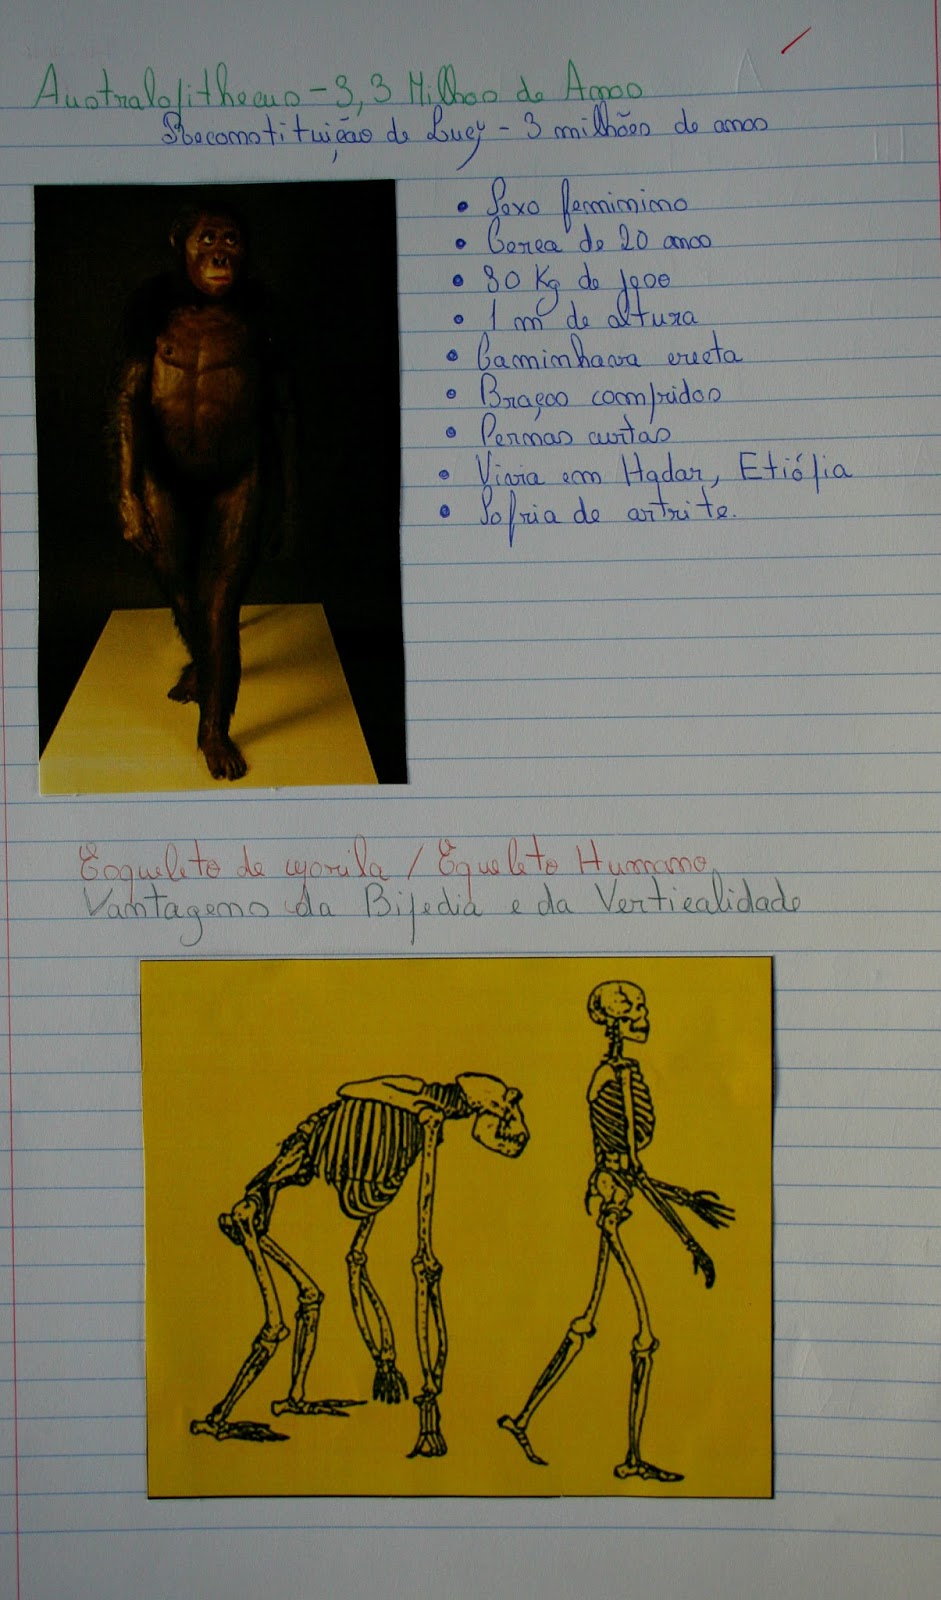 Australopithecus - 3,3 Milhos de Anos
Reconstituição de Lucy - 3 milhões de anos
• Sexo feminimo
• Cerca de 20 anos
• 30 Kg de peso
• 1 m de altura
• Caminhava erecta
• Braços compridos
• Pernas curtas
• Vivia em Hadar, Etiópia
• Sofria de artrite.
Esqueleto de gorila / Equeleto Humano
Vantagens da Bipedia e da Verticalidade